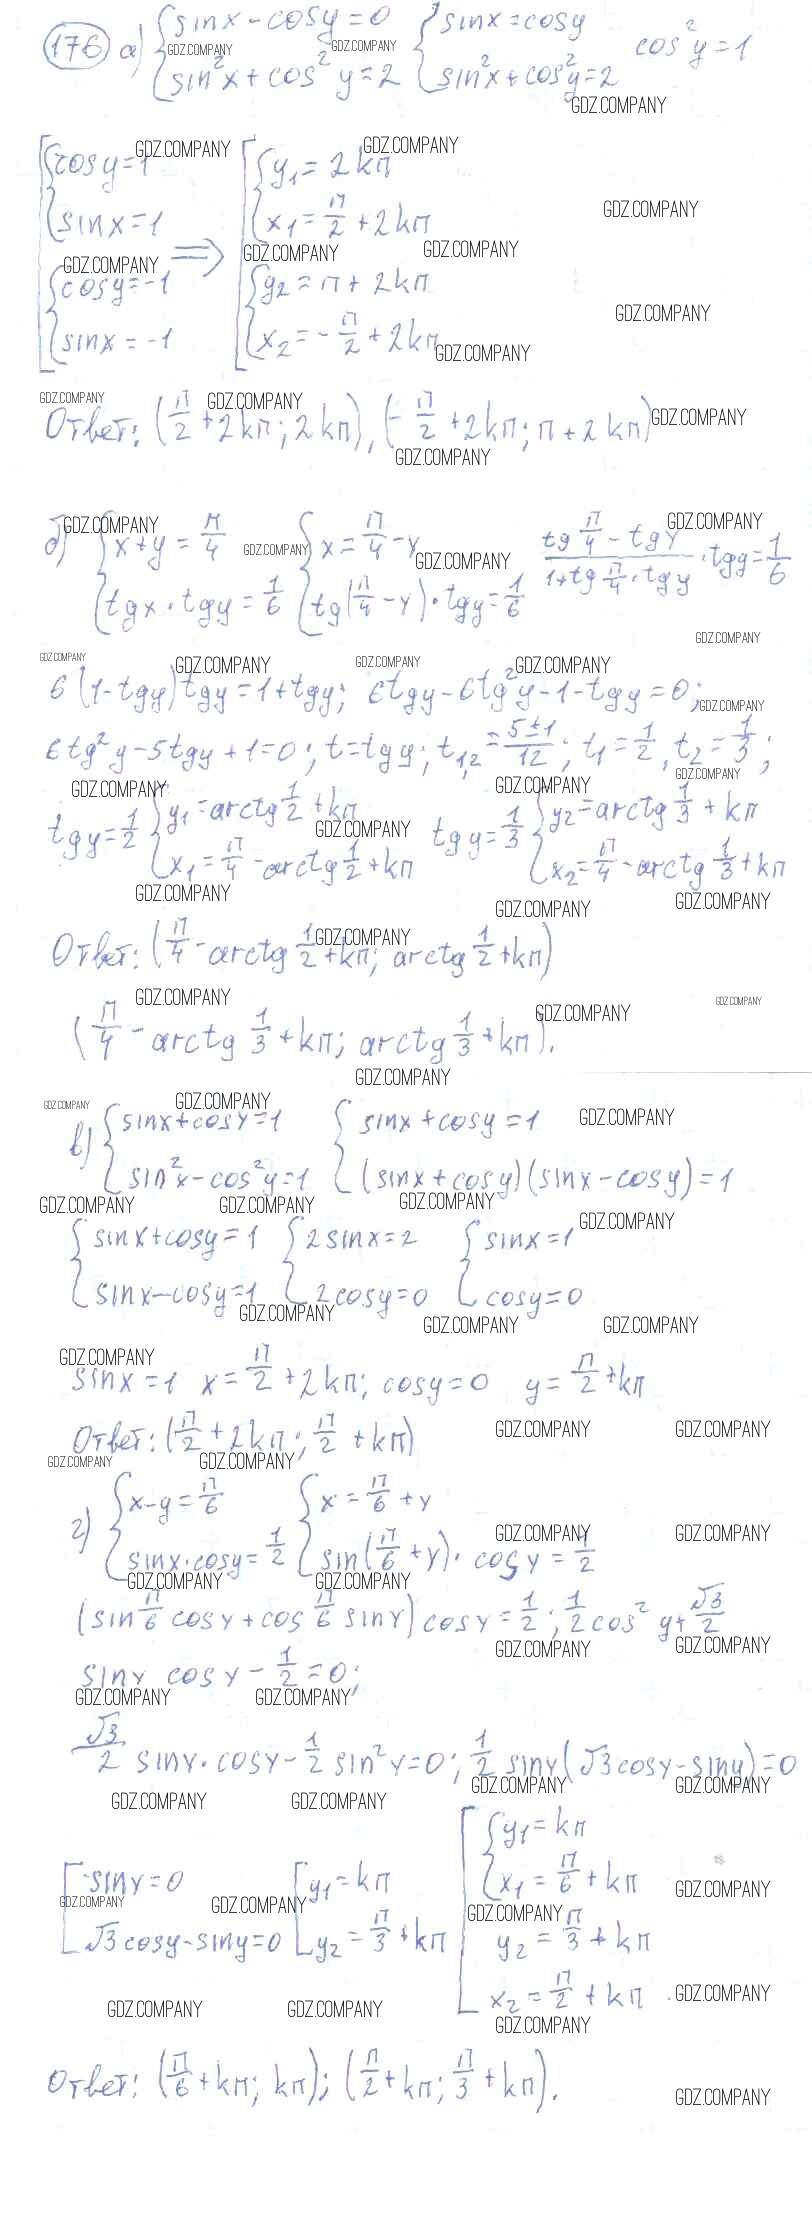 176 а) {sinx - cosy = 0 {sinx = cosy cos²y = 1
{sin²x + cos²y = 2 {sin²x + cos²y = 2
[{cosy = 1 [{y₁ = 2kπ
{sinx = 1 {x₁ = π/2 + 2kπ
⇒
{cosy = -1 {y₂ = π + 2kπ
{sinx = -1 {x₂ = -π/2 + 2kπ
Ответ: (π/2 + 2kπ; 2kπ), (-π/2 + 2kπ; π + 2kπ)
б) {x + y = π/4 {x = π/4 - y (tg π/4 - tgy)/(1 + tg π/4 · tgy) · tgy = 1/6
{tgx · tgy = 1/6 {tg(π/4 - y) · tgy = 1/6
6(1 - tgy)tgy = 1 + tgy; 6tgy - 6tg²y - 1 - tgy = 0;
6tg²y - 5tgy + 1 = 0; t = tgy; t₁,₂ = (5±1)/12; t₁ = 1/2, t₂ = 1/3;
tgy = 1/2 {y₁ = arctg 1/2 + kπ tgy = 1/3 {y₂ = arctg 1/3 + kπ
{x₁ = π/4 - arctg 1/2 + kπ {x₂ = π/4 - arctg 1/3 + kπ
Ответ: (π/4 - arctg 1/2 + kπ; arctg 1/2 + kπ)
(π/4 - arctg 1/3 + kπ; arctg 1/3 + kπ).
в) {sinx + cosy = 1 {sinx + cosy = 1
{sin²x - cos²y = 1 {(sinx + cosy)(sinx - cosy) = 1
{sinx + cosy = 1 {2sinx = 2 {sinx = 1
{sinx - cosy = 1 {2cosy = 0 {cosy = 0
sinx = 1 x = π/2 + 2kπ; cosy = 0 y = π/2 + kπ
Ответ: (π/2 + 2kπ; π/2 + kπ)
г) {x - y = π/6 {x = π/6 + y
{sinx · cosy = 1/2 {sin(π/6 + y) · cosy = 1/2
(sin π/6 cosy + cos π/6 siny) cosy = 1/2; 1/2 cos²y + √3/2
siny cosy - 1/2 = 0;
√3/2 siny · cosy - 1/2 sin²y = 0; 1/2 siny(√3cosy - siny) = 0
[siny = 0 [y₁ = kπ [{y₁ = kπ
{x₁ = π/6 + kπ
√3cosy - siny = 0 y₂ = π/3 + kπ y₂ = π/3 + kπ
x₂ = π/2 + kπ
Ответ: (π/6 + kπ; kπ); (π/2 + kπ; π/3 + kπ).
GDZ.COMPANY